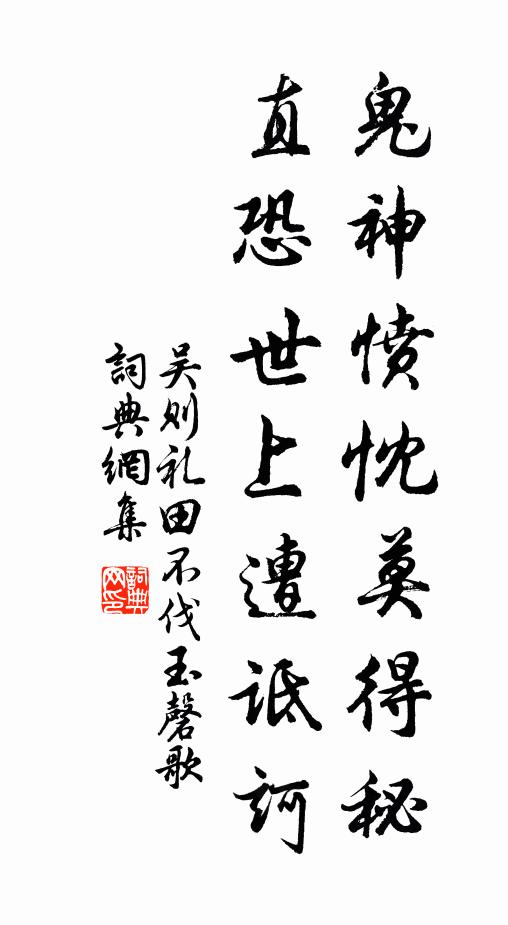 鬼神愤忱莫得秘
直恐世上遭诋訶
吴则礼田不伐玉磬歌
詞典網集
詞典网印